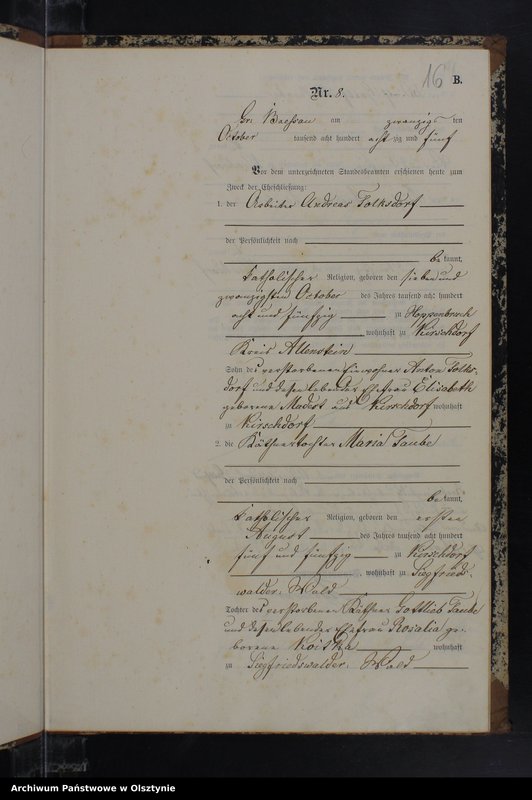 16 B.
Nr. 8.
Gr. am zwanzigsten
October tausend acht hundert achtzig und fünf
Vor dem unterzeichneten Standesbeamten erschienen heute zum
Zweck der Eheschließung:
1. der Arbeiter Andreas Folksdorf
der Persönlichkeit nach
bekannt,
katholischer Religion, geboren den sieben und
zwanzigsten October des Jahres tausend acht hundert
acht und fünfzig zu Hoppenbruch
wohnhaft zu Kirschdorf
Kreis Allenstein
Sohn des verstorbenen Einwohner Anton Folks-
dorf und dessen lebender Ehefrau Elisabeth
geborene aus Kirschdorf wohnhaft
zu Kirschdorf
2. die Käthnertochter Maria Taube
der Persönlichkeit nach
bekannt,
katholischer Religion, geboren den ersten
August des Jahres tausend acht hundert
fünf und fünfzig zu Kirschdorf
wohnhaft zu Siegfrieds-
walder. Wald
Tochter des verstorbenen Käthner Gottlieb Taube
und dessen lebender Ehefrau Rosalia ge-
borene Koitka wohnhaft
zu Siegfriedswalder. Wald
Archiwum Państwowe w Olsztynie